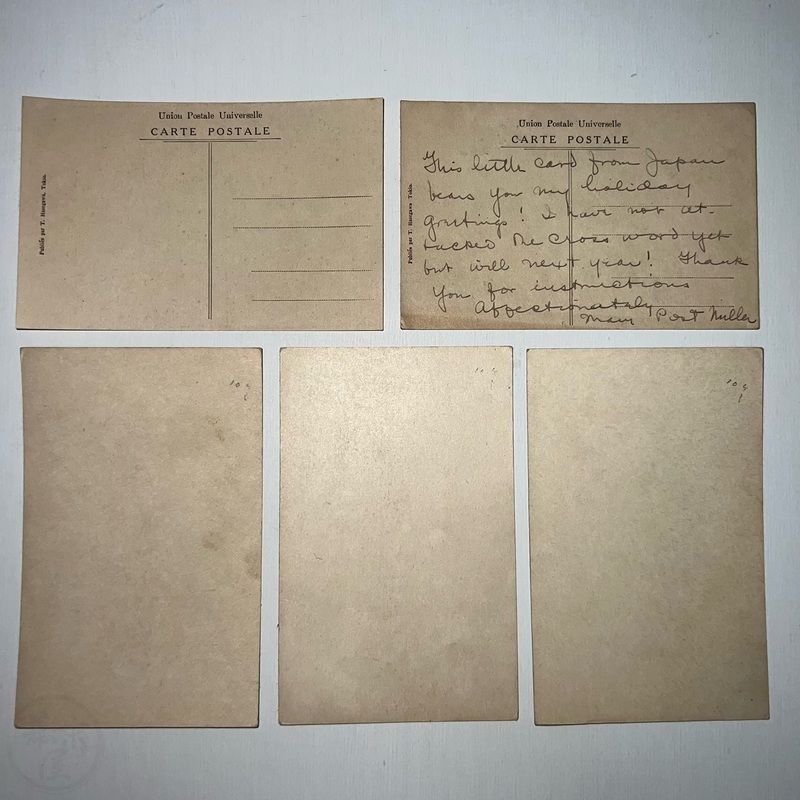 Union Postale Universelle
CARTE POSTALE
Publiée par T. Hasegawa, Tokio.
Union Postale Universelle
CARTE POSTALE
Publiée par T. Hasegawa, Tokio.
This little card from Japan
bears you my holiday
greetings! I have not at-
tacked the cross word yet
but will next year! Thank
you for instructions
Affectionately
Mary Post Miller